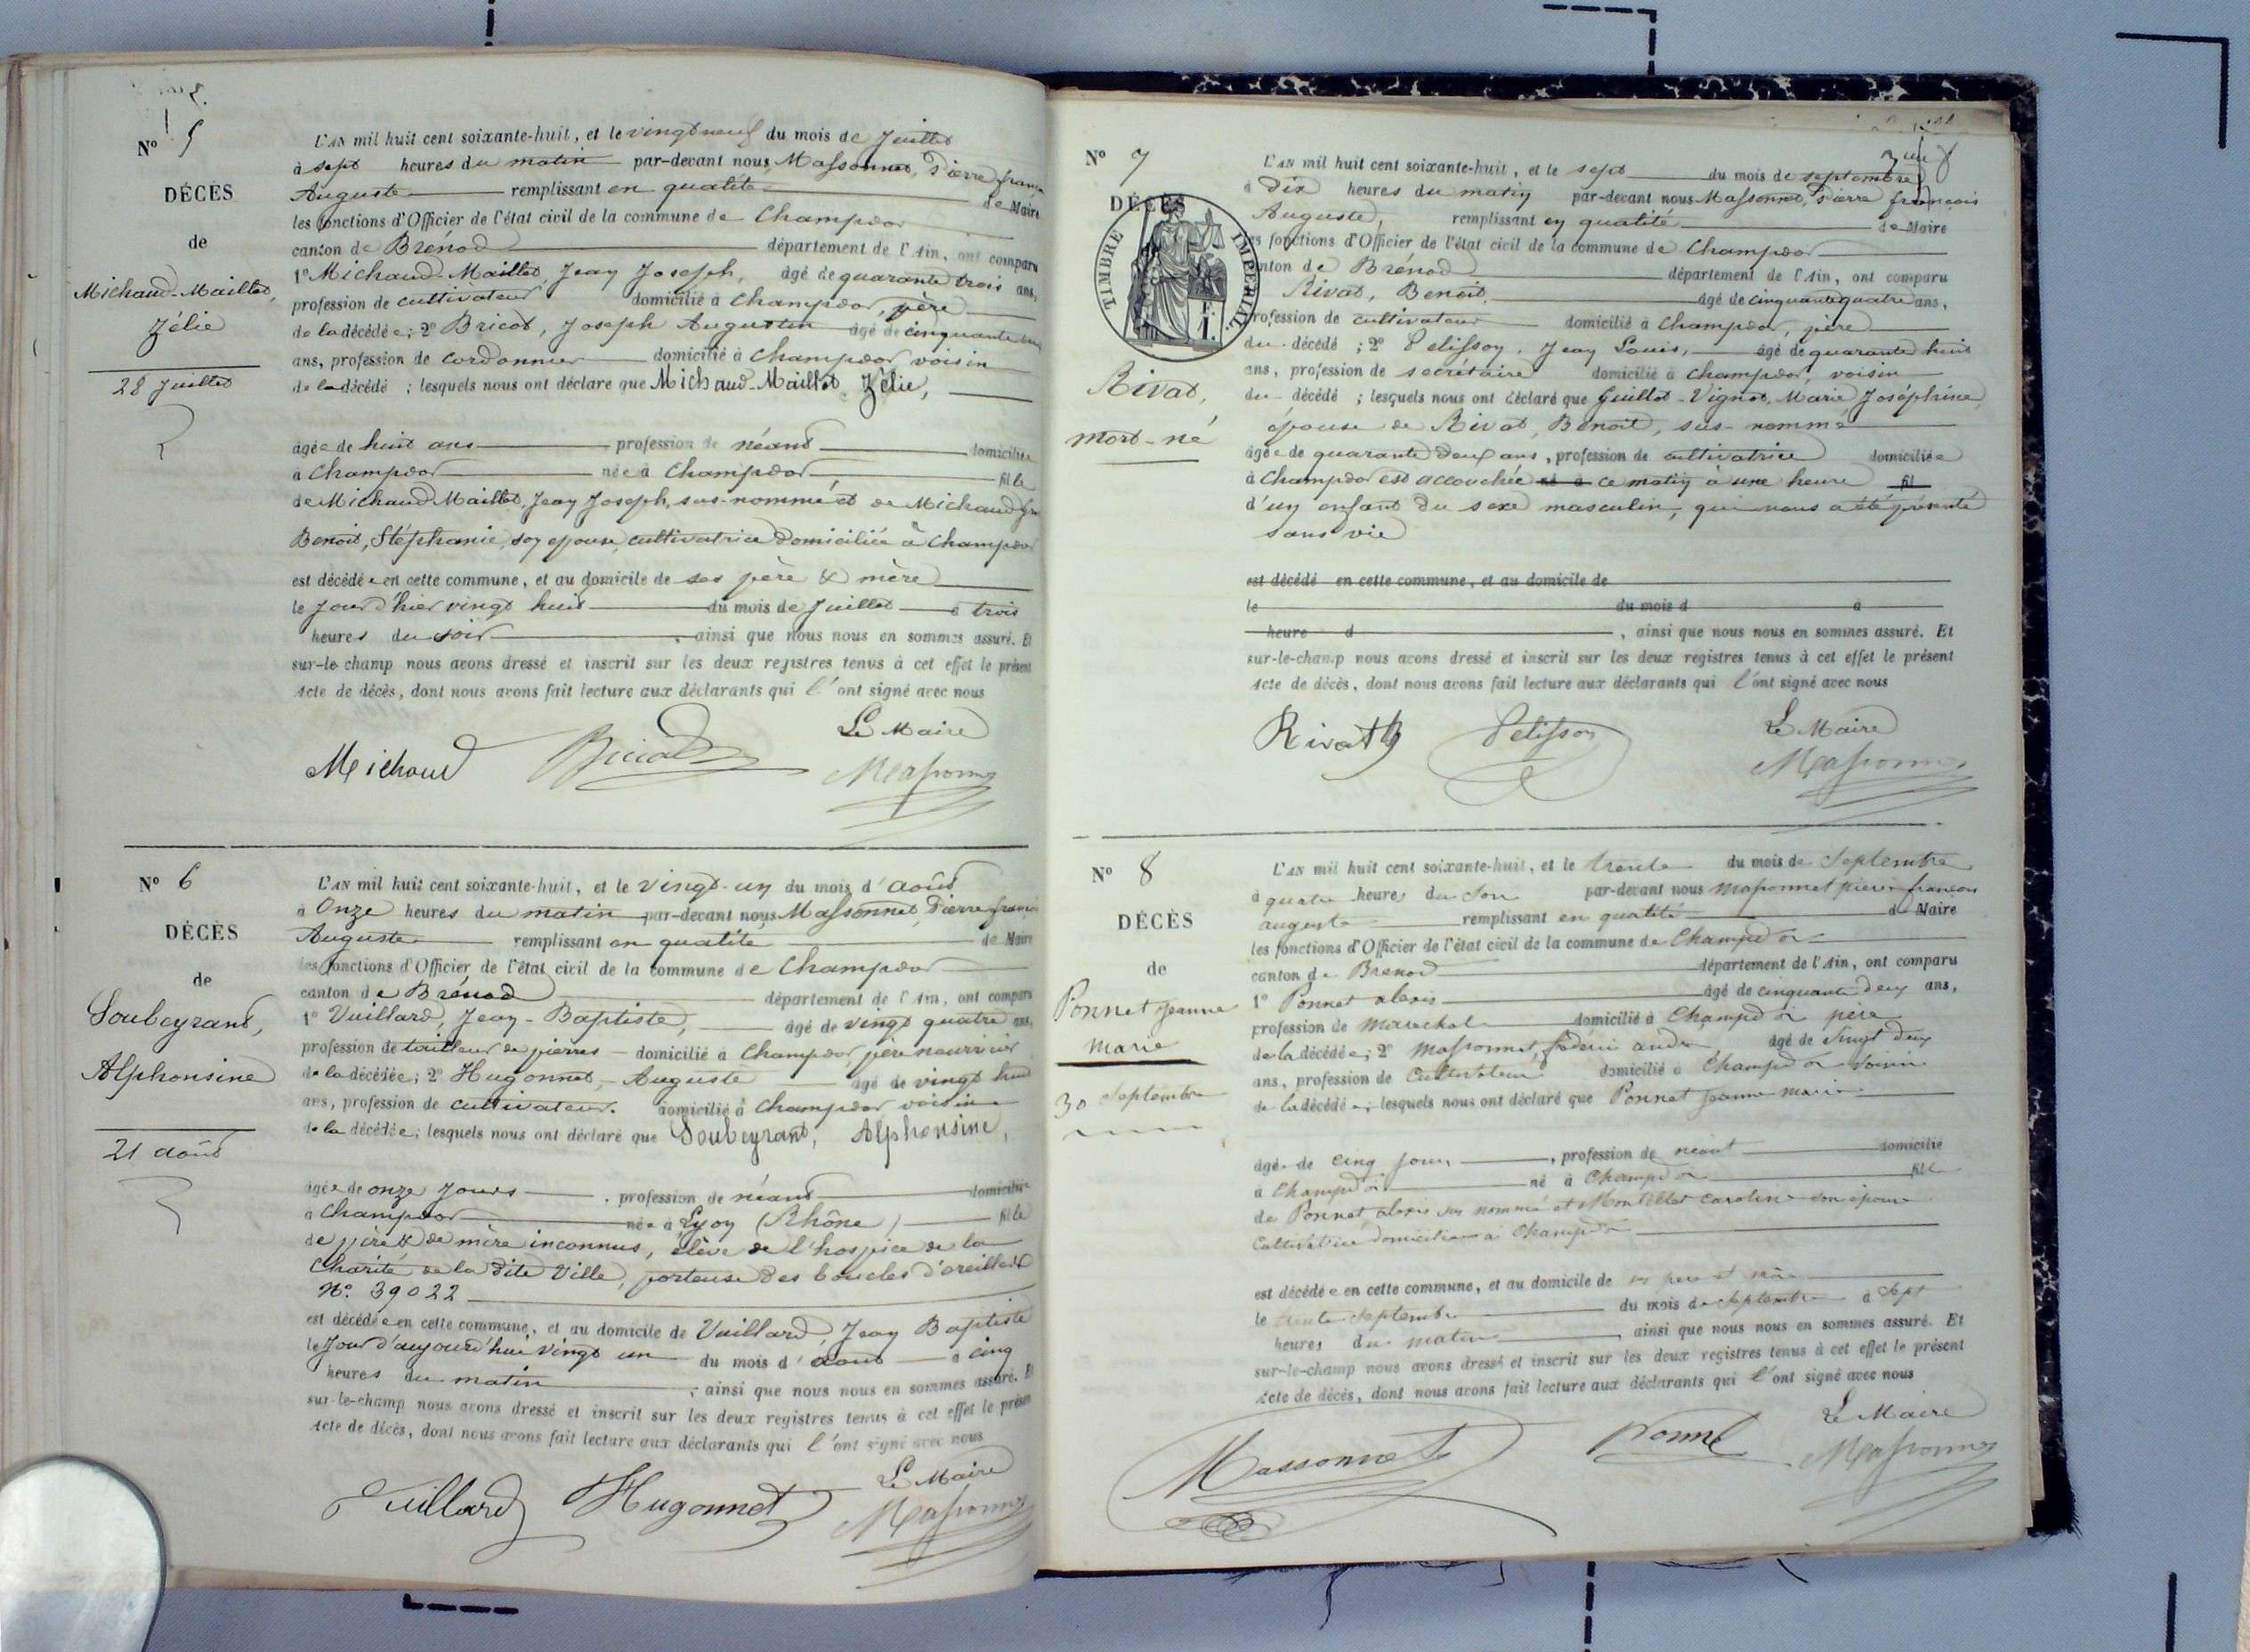 Nº 5
DÉCÈS
de
Michaud-Maillet,
Zélie
28 Juillet
L'AN mil huit cent soixante-huit, et le vingt neuf du mois de Juillet
à sept heures du matin par-devant nous, Massonnet, Pierre françois
Auguste remplissant en qualité de Maire
les fonctions d'Officier de l'état civil de la commune de Champdor
canton de Brénod département de l'Ain, ont comparu
1º Michaud-Maillet, Jean Joseph, âgé de quarante trois ans,
profession de cultivateur domicilié à Champdor, père
de la décédée; 2º Bricot, Joseph Augustin âgé de cinquante
ans, profession de cordonnier domicilié à Champdor, voisin
de la décédé ; lesquels nous ont déclaré que Michaud-Maillet, Zélie,
âgée de huit ans profession de néant domiciliée
à Champdor née à Champdor, fille
de Michaud Maillet, Jean Joseph, sus-nommé et de Michaud
Benoit, Stéphanie, son épouse, cultivatrice domiciliée à Champdor
est décédée en cette commune, et au domicile de ses père & mère
le Jour d'hier vingt huit du mois de Juillet à trois
heures du soir, ainsi que nous nous en sommes assuré. Et
sur-le-champ nous avons dressé et inscrit sur les deux registres tenus à cet effet le présent
Acte de décès, dont nous avons fait lecture aux déclarants qui l'ont signé avec nous
Le Maire
Michaud Bricot Massonnet
Nº 6
DÉCÈS
de
Soubeyrand,
Alphonsine
21 août
L'AN mil huit cent soixante-huit, et le vingt-un du mois d'août
à Onze heures du matin par-devant nous Massonnet, Pierre françois
Auguste remplissant en qualité de Maire
les fonctions d'Officier de l'état civil de la commune de Champdor
canton de Brénod département de l'Ain, ont comparu
1º Vuillard, Jean-Baptiste, âgé de vingt quatre ans,
profession de tailleur de pierres domicilié à Champdor père nourricier
de la décédée; 2º Hugonnet, Auguste âgé de vingt huit
ans, profession de cultivateur. domicilié à Champdor voisin
de la décédée; lesquels nous ont déclaré que Soubeyrand, Alphonsine,
âgée de onze jours, profession de néant domiciliée
à Champdor née à Lyon (Rhône) fille
de père & de mère inconnus, élève de l'hospice de la
Charité de la dite Ville, porteuse des boucles d'oreilles
Nº. 39022
est décédée en cette commune, et au domicile de Vuillard, Jean Baptiste
le Jour d'aujourd'hui vingt un du mois d'août à cinq
heures du matin, ainsi que nous nous en sommes assuré. Et
sur-le-champ nous avons dressé et inscrit sur les deux registres tenus à cet effet le présent
Acte de décès, dont nous avons fait lecture aux déclarants qui l'ont signé avec nous
Le Maire
Vuillard Hugonnet Massonnet
Nº 7
DÉCÈS
TIMBRE IMPÉRIAL
Rivat,
mort-né
L'AN mil huit cent soixante-huit, et le sept du mois de septembre
à Dix heures du matin par-devant nous Massonnet, Pierre françois
Auguste, remplissant en qualité de Maire
les fonctions d'Officier de l'état civil de la commune de Champdor
canton de Brénod département de l'Ain, ont comparu
Rivat, Benoit, âgé de cinquante quatre ans,
profession de cultivateur domicilié à Champdor, père
du décédé ; 2º Pelisson, Jean Louis, âgé de quarante huit
ans, profession de secrétaire domicilié à Champdor, voisin
du décédé ; lesquels nous ont déclaré que Guillot-Vignot, Marie Joséphine,
épouse de Rivat, Benoit, sus-nommé
âgée de quarante deux ans, profession de cultivatrice domiciliée
à Champdor est accouchée né à ce matin à une heure fil
d'un enfant du sexe masculin, qui nous a été présenté
sans vie
est décédé en cette commune, et au domicile de
le du mois d à
heure d , ainsi que nous nous en sommes assuré. Et
sur-le-champ nous avons dressé et inscrit sur les deux registres tenus à cet effet le présent
Acte de décès, dont nous avons fait lecture aux déclarants qui l'ont signé avec nous
Le Maire
Rivat B Pelisson Massonnet
Nº 8
DÉCÈS
de
Ponnet Jeanne
Marie
30 Septembre
L'AN mil huit cent soixante-huit, et le trente du mois de Septembre
à quatre heures du Soir par-devant nous Massonnet pierre françois
auguste remplissant en qualité de Maire
les fonctions d'Officier de l'état civil de la commune de Champdor
canton de Brenod département de l'Ain, ont comparu
1º Ponnet alexis âgé de cinquante deux ans,
profession de Marechal domicilié à Champdor père
de la décédée; 2º Massonnet, andre âgé de Vingt deux
ans, profession de Cultivateur domicilié à Champdor Voisin
de la décédée; lesquels nous ont déclaré que Ponnet Jeanne Marie
âgée de cinq jours, profession de néant domicilié
à Champdor né à Champdor fille
de Ponnet alexis sus nommé et Montillet Caroline son épouse
Cultivatrice domiciliée à Champdor
est décédée en cette commune, et au domicile de ses père et mère
le trente Septembre du mois de Septembre à Sept
heures du matin, ainsi que nous nous en sommes assuré. Et
sur-le-champ nous avons dressé et inscrit sur les deux registres tenus à cet effet le présent
Acte de décès, dont nous avons fait lecture aux déclarants qui l'ont signé avec nous
Le Maire
Massonnet Ponnet Massonnet